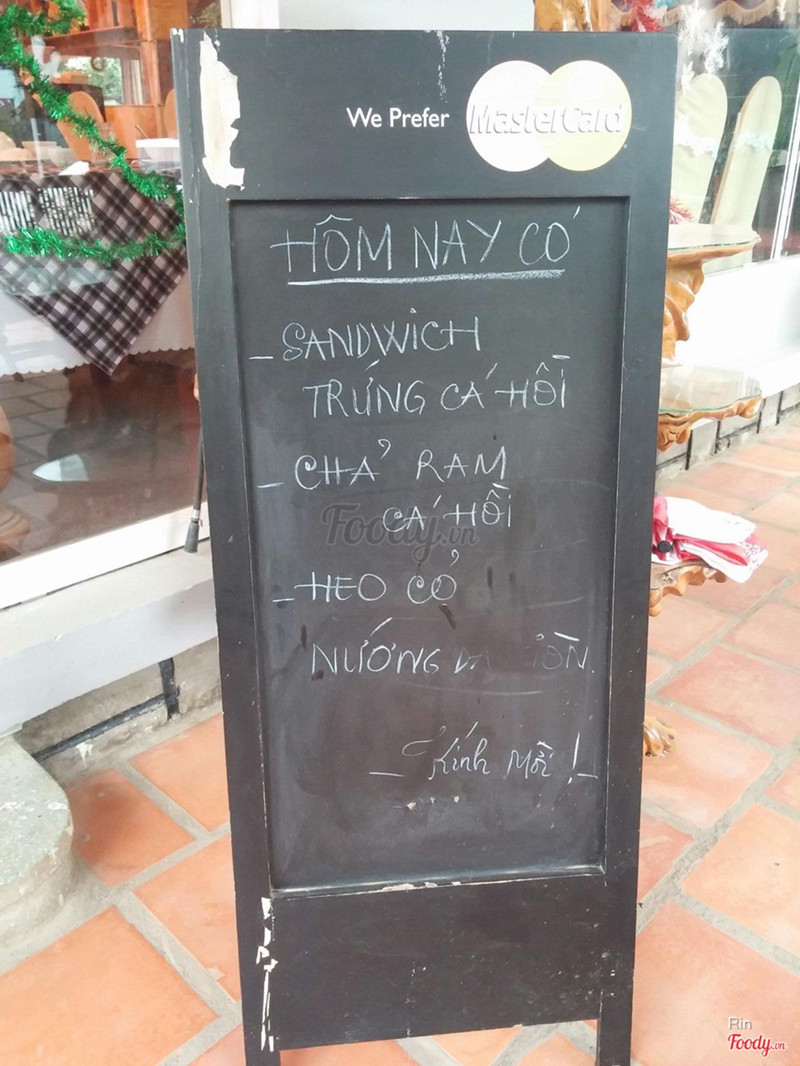 We Prefer MasterCard
HÔM NAY CÓ
- SANDWICH
TRỨNG CÁ HỒI
- CHẢ RAM
CÁ HỒI
Foody.vn
- HEO CỎ
NƯỚNG
- Kính Mời! -
Rin
Foody.vn